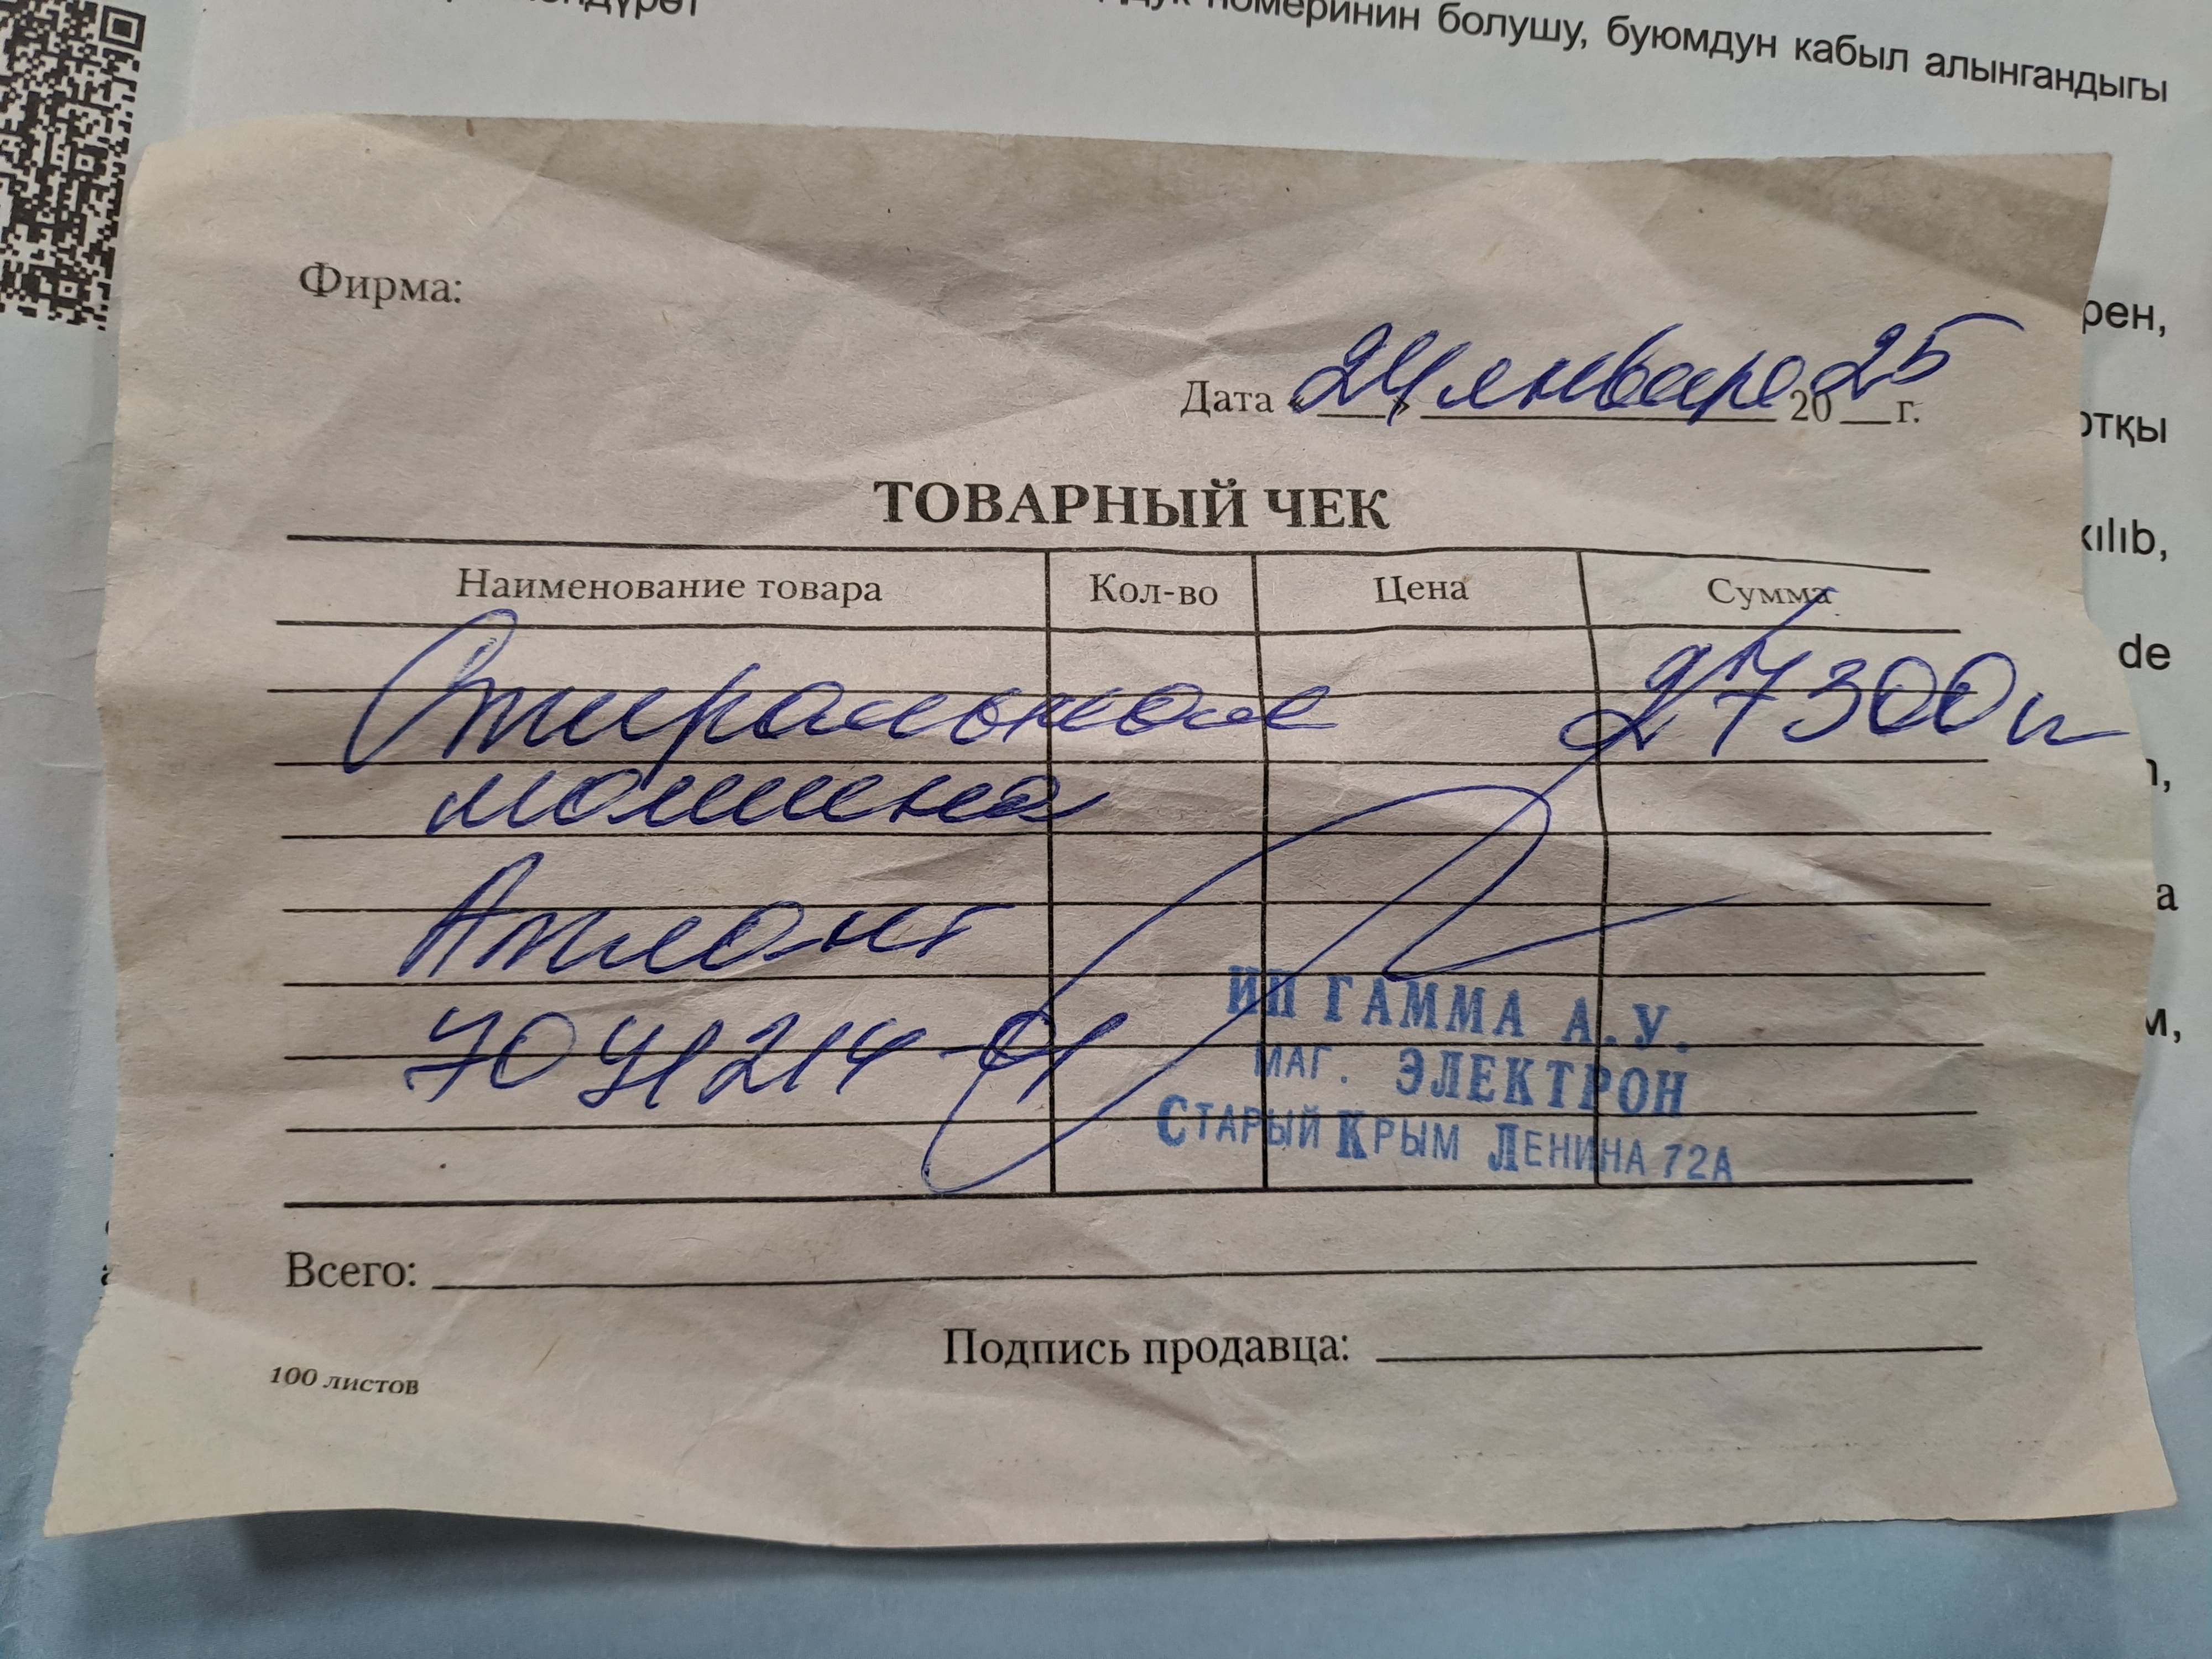 номеринин болушу, буюмдун кабыл алынгандыгы
Фирма:
Дата «24» января 2025 г.
ТОВАРНЫЙ ЧЕК
Наименование товара Кол-во Цена Сумма
Стиральная 27300
машина
Атлант
70У1214-01
ИП ГАММА А.У.
МАГ. ЭЛЕКТРОН
СТАРЫЙ КРЫМ ЛЕНИНА 72А
Всего:
Подпись продавца:
100 листов
de